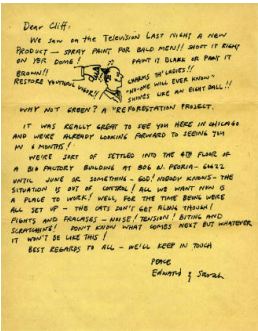 Dear Cliff:
WE SAW ON THE TELEVISION LAST NIGHT A NEW
PRODUCT — SPRAY PAINT FOR BALD MEN!! SHOOT IT RIGHT
ON YER DOME! PAINT IT BLACK OR PAINT IT
BROWN!! CHARMS TH' LADIES!!
RESTORE YOUTHFUL VIGOR!! "NO-ONE WILL EVER KNOW"
SHINES LIKE AN EIGHT BALL!!
WHY NOT GREEN? A "REFORESTATION PROJECT.
IT WAS REALLY GREAT TO SEE YOU HERE IN CHICAGO
AND WE'RE ALREADY LOOKING FORWARD TO SEEING YOU
IN 6 MONTHS!
WE'RE SORT OF SETTLED INTO THE 4TH FLOOR OF
A BIG FACTORY BUILDING AT 806 N. PEORIA - 60622
UNTIL JUNE OR SOMETHING — GOD! NOBODY KNOWS — THE
SITUATION IS OUT OF CONTROL! ALL WE WANT NOW IS
A PLACE TO WORK! WELL, FOR THE TIME BEING WE'RE
ALL SET UP — THE CATS DON'T GET ALONG THOUGH!
FIGHTS AND FRACASES - NOISE! TENSION! BITING AND
SCRATCHING! DON'T KNOW WHAT COMES NEXT BUT WHATEVER
IT WON'T BE LIKE THIS!
BEST REGARDS TO ALL — WE'LL KEEP IN TOUCH
PEACE
EDWARD & SARAH